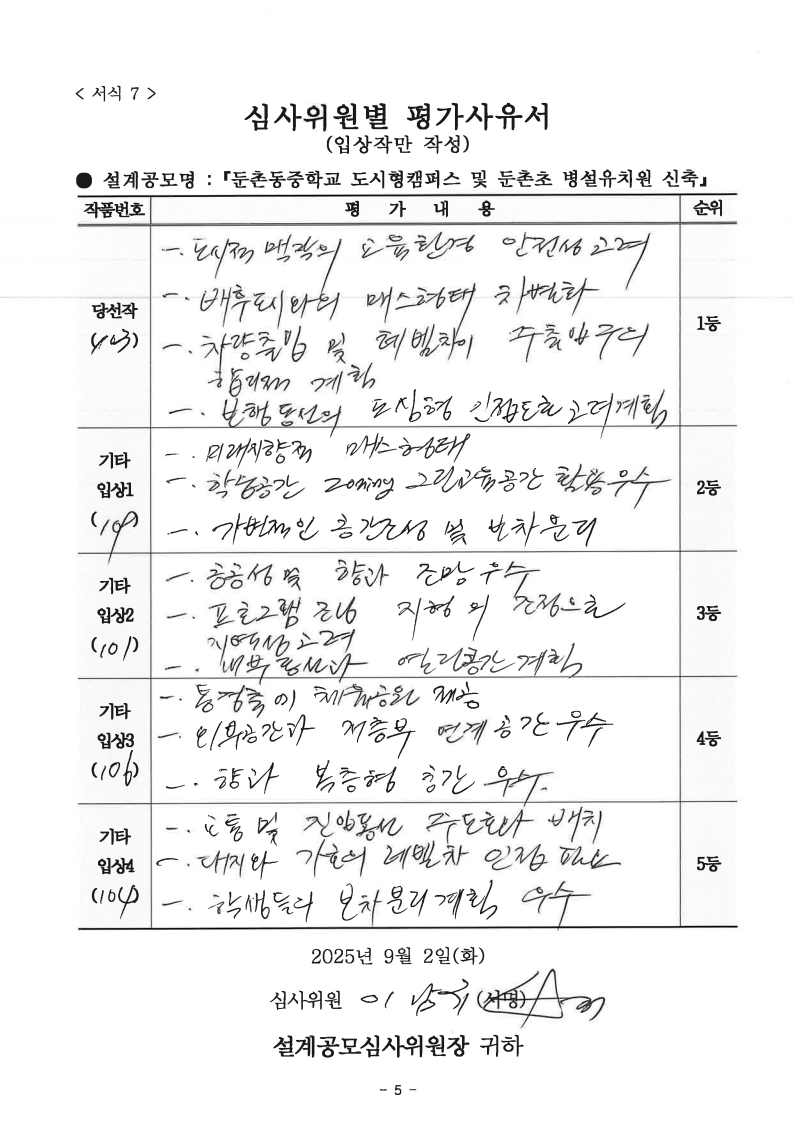 < 서식 7 >
심사위원별 평가사유서
(입상작만 작성)
● 설계공모명 : 『둔촌동중학교 도시형캠퍼스 및 둔촌초 병설유치원 신축』
작품번호 평 가 내 용 순위
당선작
1등
一. 도시적 맥락의 교육환경 안전성 고려
一. 배후도시와의 매스형태 차별화
一. 차량출입 및 레벨차이 주출입구의
합리적 계획
一. 보행동선의 고려계획
기타
입상1
(109)
2등
一. 미래지향적 매스형태
一. 학습공간 zoning 그린교육공간 활용 우수
一. 가변적인 공간조성 및 보차분리
기타
입상2
(101)
3등
一. 공공성 및 향과 조망 우수
一. 프로그램 조닝 지형의 조정으로
지역성 고려
一. 내부동선과 열린공간 계획
기타
입상3
(106)
4등
一. 통경축이 제공
一. 외부공간과 저층부 연계공간 우수
一. 향과 복층형 공간 우수.
기타
입상4
(104)
5등
一. 교통 및 진입동선 배치
一. 대지와 레벨차 인접
一. 학생들의 보차분리계획 우수
2025년 9월 2일(화)
심사위원 이 (서명)
설계공모심사위원장 귀하
- 5 -